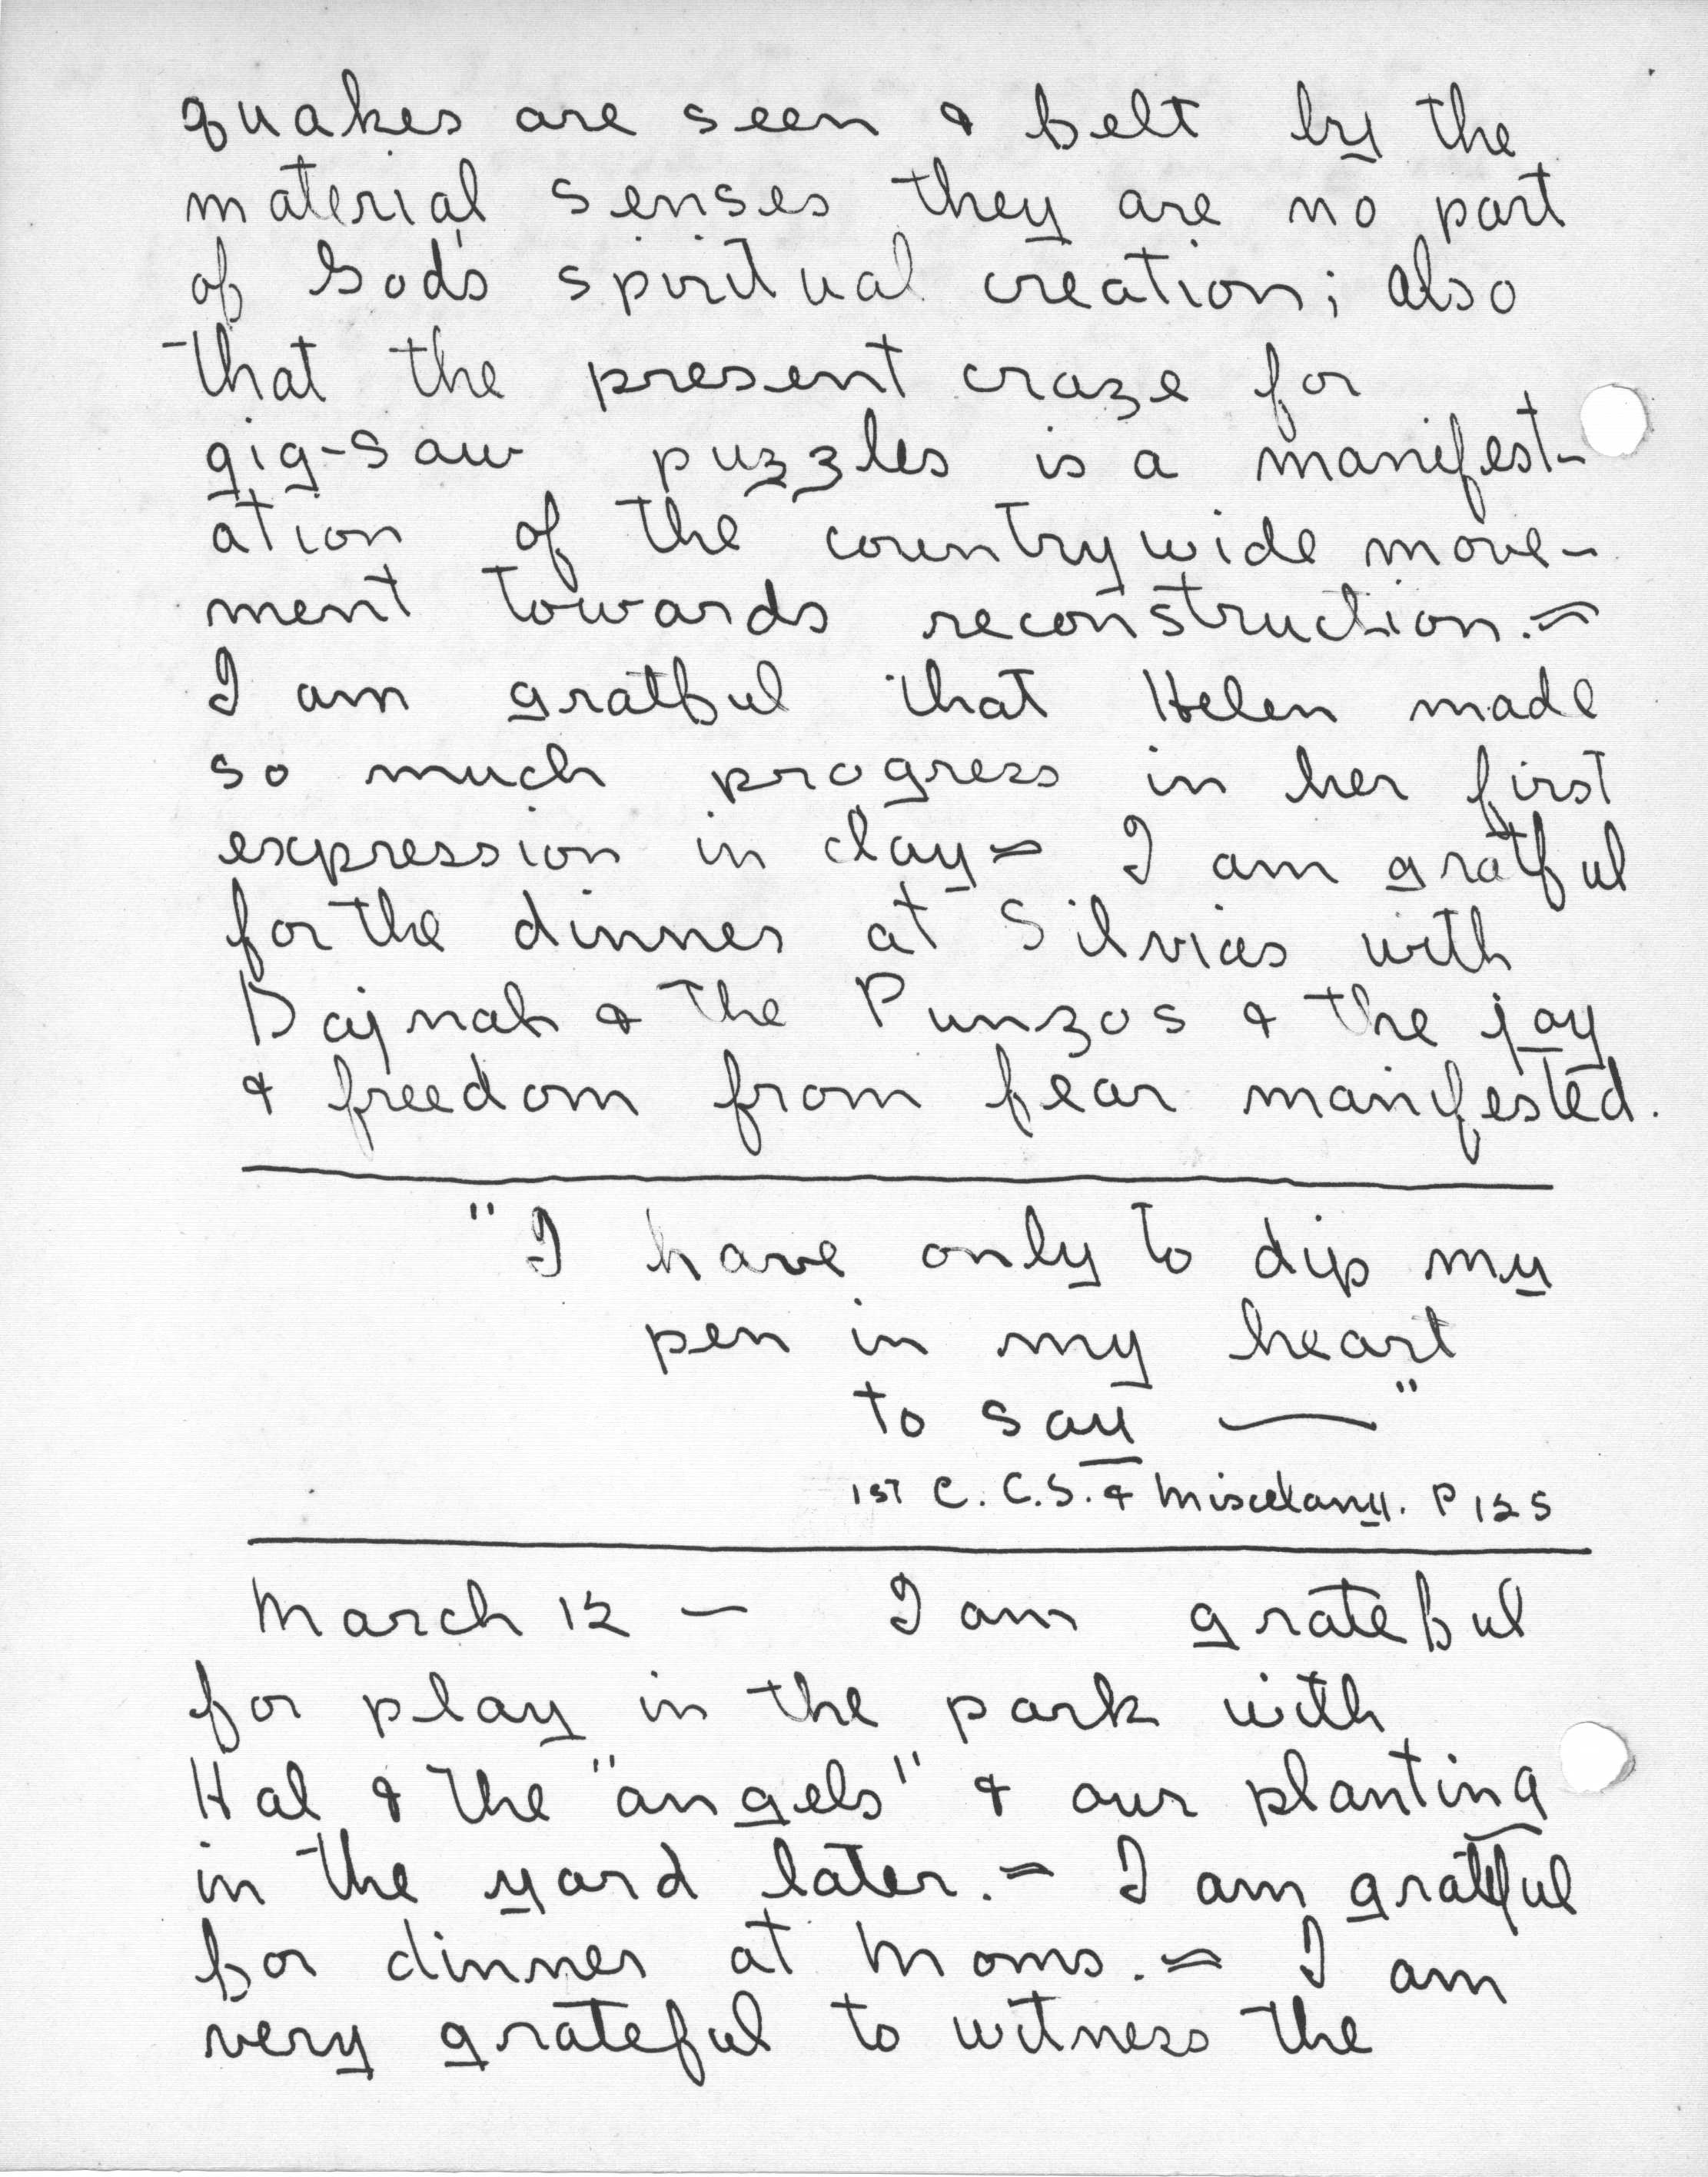 quakes are seen & felt by the
material senses they are no part
of God's spiritual creation; also
that the present craze for
gig-saw puzzles is a manifest-
ation of the countrywide move-
ment towards reconstruction.=
I am gratful that Helen made
so much progress in her first
expression in clay= I am gratful
for the dinner at Silvias with
Dajnah & the Punzos & the joy
& freedom from fear manifested.
"I have only to dip my
pen in my heart
to say —"
1st C. C.S. & Miscelany. P 125
March 12 — I am grateful
for play in the park with
Hal & the "angels" & our planting
in the yard later.= I am gratful
for dinner at Moms.= I am
very grateful to witness the